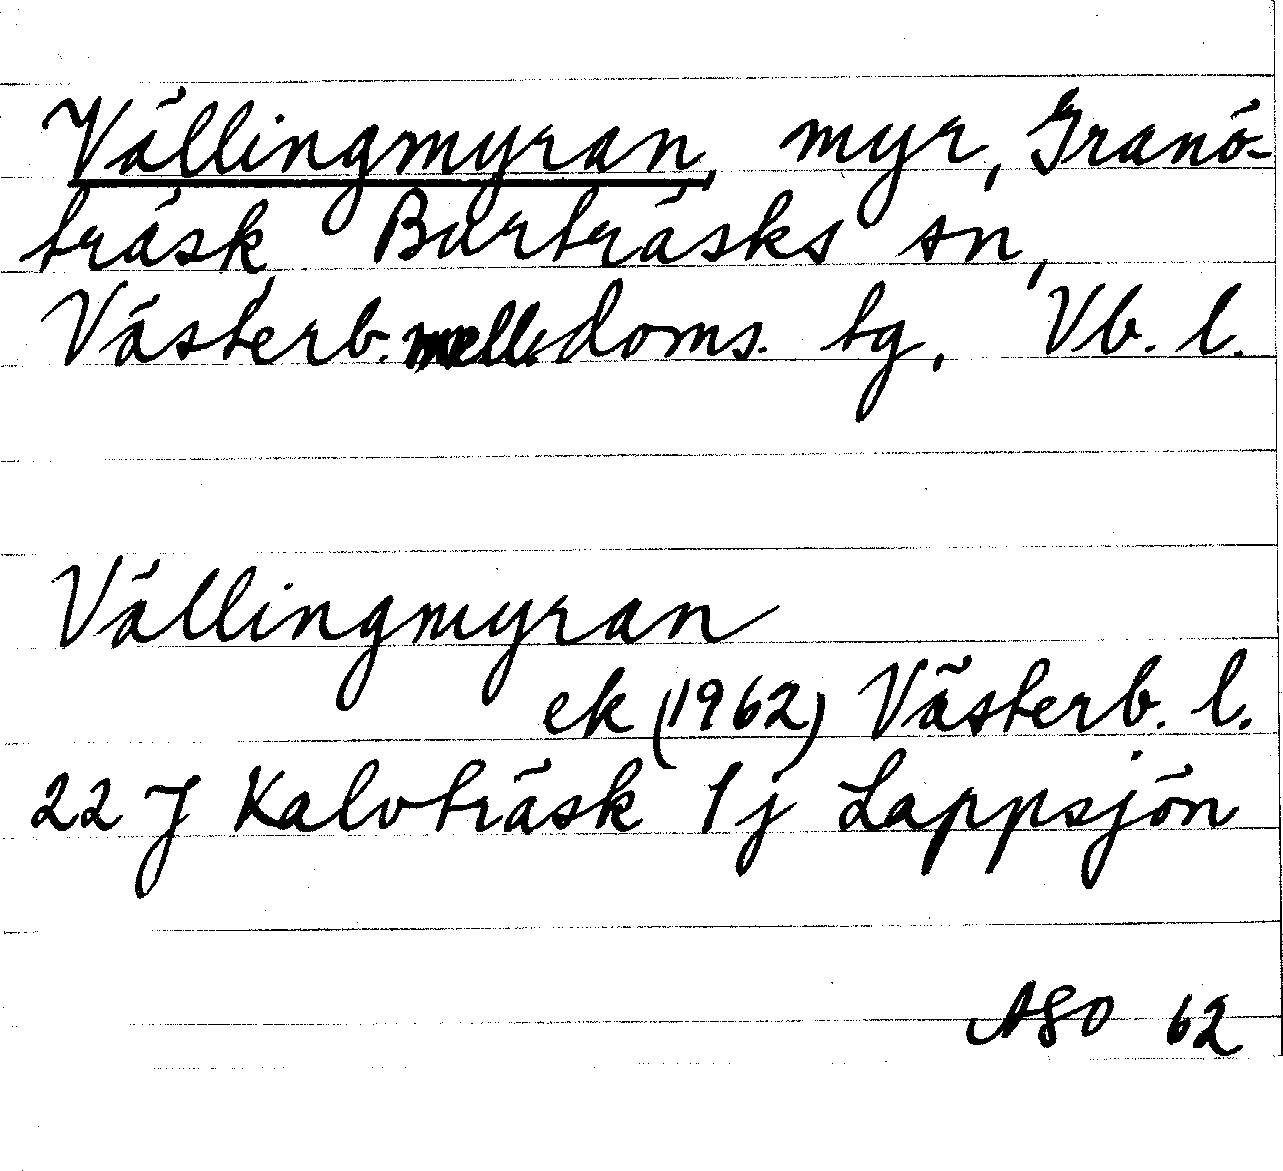 Vällingmyran, myr, Granö-
träsk, Burträsks sn,
Västerb. mell. doms. tg, Vb. l.
Vällingmyran
ek (1962) Västerb. l.
22 J Kalvträsk 1 j Lappsjön
ASO 62